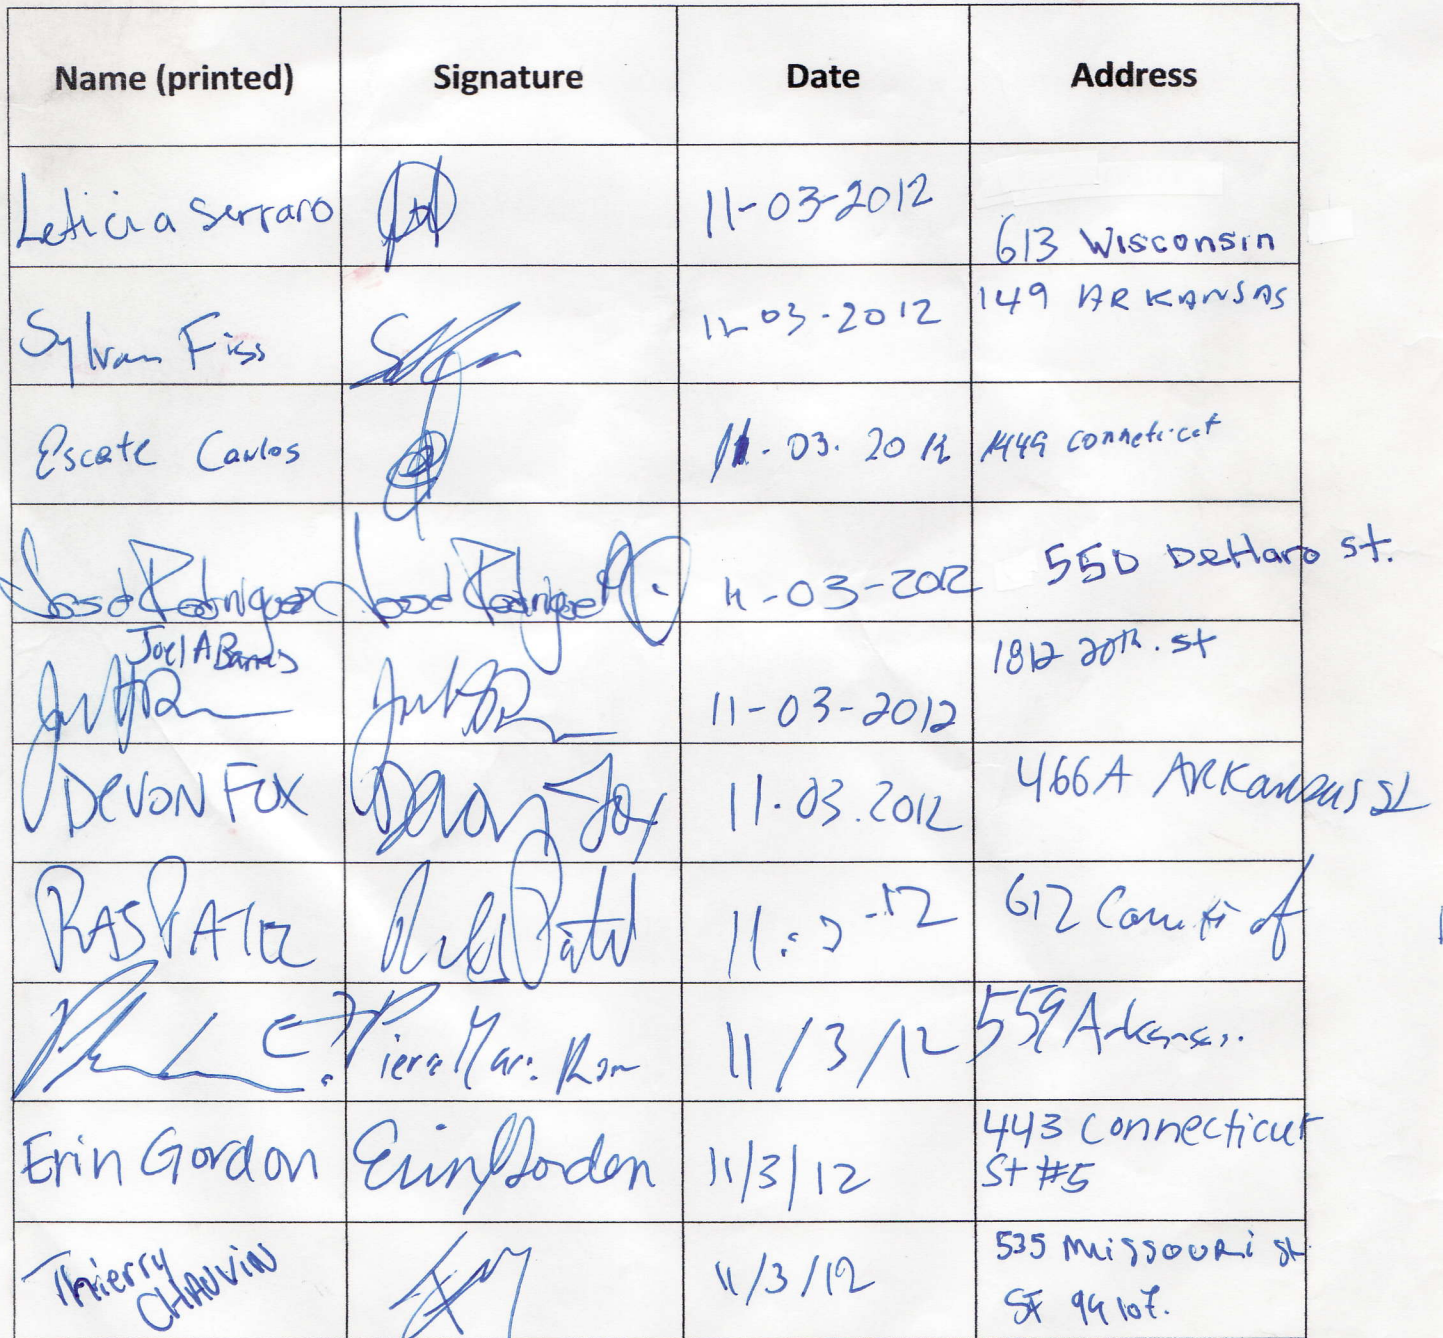 Name (printed) Signature Date Address
Leticia Serraro 11-03-2012 613 Wisconsin
Sylvan Fiss 11-03-2012 149 ARKANSAS
Escate Carlos 11.03.2012 1449 conneticut
José Rodriguez José Rodriguez 11-03-2012 550 DeHaro st.
Joel A Barnes 11-03-2012 1812 20th. st
DEVON FOX Devon Fox 11.03.2012 466A ARKansas St
RAS PATEL Patel 612
11/3/12 559 Arkansas.
Erin Gordon Erin Gorden 11/3/12 443 Connecticut
St #5
Thierry
CHAUVIN 11/3/12 535 Missouri st
SF 94107.